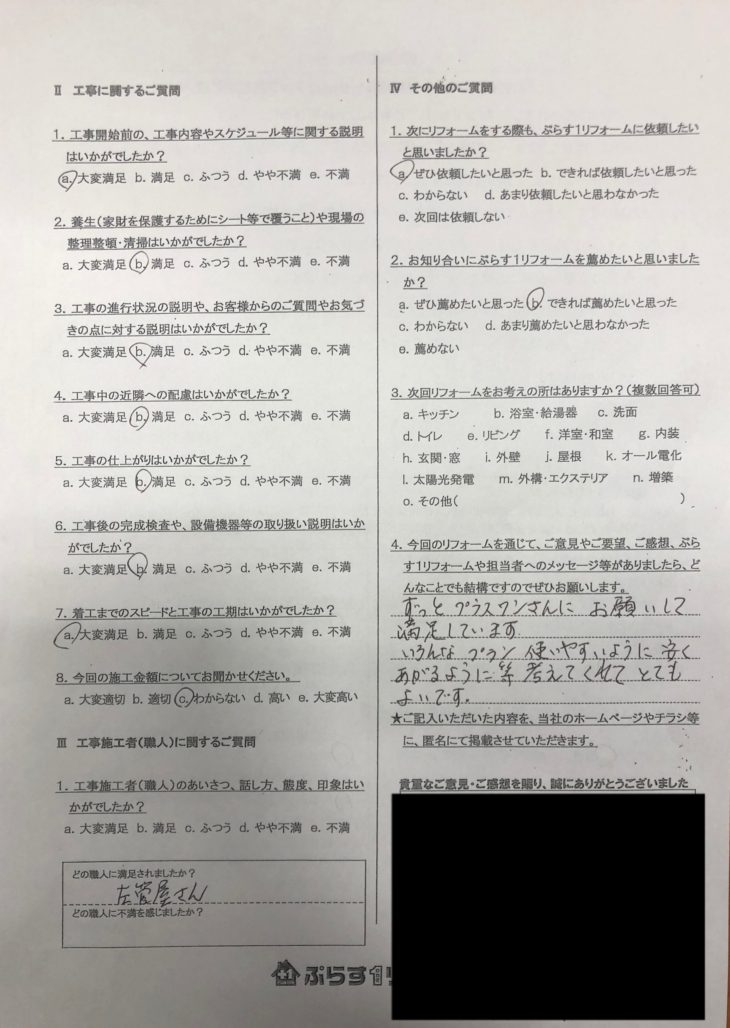 Ⅱ 工事に関するご質問
1. 工事開始前の、工事内容やスケジュール等に関する説明
はいかがでしたか?
a. 大変満足 b. 満足 c. ふつう d. やや不満 e. 不満
2. 養生(家財を保護するためにシート等で覆うこと)や現場の
整理整頓・清掃はいかがでしたか?
a. 大変満足 b. 満足 c. ふつう d. やや不満 e. 不満
3. 工事の進行状況の説明や、お客様からのご質問やお気づ
きの点に対する説明はいかがでしたか?
a. 大変満足 b. 満足 c. ふつう d. やや不満 e. 不満
4. 工事中の近隣への配慮はいかがでしたか?
a. 大変満足 b. 満足 c. ふつう d. やや不満 e. 不満
5. 工事の仕上がりはいかがでしたか?
a. 大変満足 b. 満足 c. ふつう d. やや不満 e. 不満
6. 工事後の完成検査や、設備機器等の取り扱い説明はいか
がでしたか?
a. 大変満足 b. 満足 c. ふつう d. やや不満 e. 不満
7. 着工までのスピードと工事の工期はいかがでしたか?
a. 大変満足 b. 満足 c. ふつう d. やや不満 e. 不満
8. 今回の施工金額についてお聞かせください。
a. 大変適切 b. 適切 c. わからない d. 高い e. 大変高い
Ⅲ 工事施工者(職人)に関するご質問
1. 工事施工者(職人)のあいさつ、話し方、態度、印象はい
かがでしたか?
a. 大変満足 b. 満足 c. ふつう d. やや不満 e. 不満
どの職人に満足されましたか?
左管屋さん
どの職人に不満を感じましたか?
Ⅳ その他のご質問
1. 次にリフォームをする際も、ぷらす1リフォームに依頼したい
と思いましたか?
a. ぜひ依頼したいと思った b. できれば依頼したいと思った
c. わからない d. あまり依頼したいと思わなかった
e. 次回は依頼しない
2. お知り合いにぷらす1リフォームを薦めたいと思いました
か?
a. ぜひ薦めたいと思った b. できれば薦めたいと思った
c. わからない d. あまり薦めたいと思わなかった
e. 薦めない
3. 次回リフォームをお考えの所はありますか?(複数回答可)
a. キッチン b. 浴室・給湯器 c. 洗面
d. トイレ e. リビング f. 洋室・和室 g. 内装
h. 玄関・窓 i. 外壁 j. 屋根 k. オール電化
l. 太陽光発電 m. 外構・エクステリア n. 増築
o. その他( )
4. 今回のリフォームを通じて、ご意見やご要望、ご感想、ぷら
す1リフォームや担当者へのメッセージ等がありましたら、ど
んなことでも結構ですのでぜひお願いします。
ずっと プラスワンさんに お願いして
満足しています
いろんな プラン 使いやすいように 安く
あがるように等 考えてくれて とても
よいです。
★ご記入いただいた内容を、当社のホームページやチラシ等
に、匿名にて掲載させていただきます。
貴重なご意見・ご感想を賜り、誠にありがとうございました
+1 ぷらす1リ